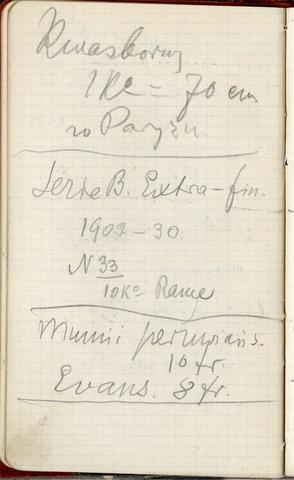 Kwasborny
1 Kl = 70 cm
w Paryżu
Serie B. Extra-fin.
1902-30.
N 33
10 Ko- Rame
Mumii peruviańs.
10 fr.
Evans. 8 fr.